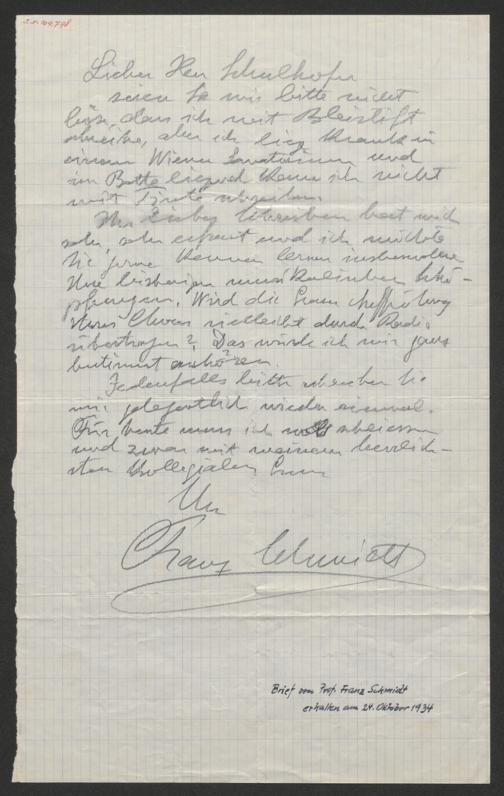 Lieber Herr Schulhofer
seien Sie mir bitte nicht
böse, dass ich mit Bleistift
schreibe, aber ich lieg krank in
einem Wiener Sanatorium und
im Bette liegend kann ich nicht
mit Tinte schreiben.
Ihr liebes Schreiben hat mich
sehr, sehr erfreut und ich möchte
Sie gerne kennen lernen insbesondere
Ihre bisherigen musikalischen Schö-
pfungen. Wird die
Ihres vielleicht durch Radio
übertragen? Das würde ich mir ganz
bestimmt anhören.
Jedenfalls bitte schreiben Sie
mir gelegentlich wieder einmal.
Für heute muss ich schliessen
und zwar mit meinem herzlich-
sten kollegialen Gruss
Ihr
Franz Schmidt
Brief vom Prof. Franz Schmidt
erhalten am 24. Oktober 1934